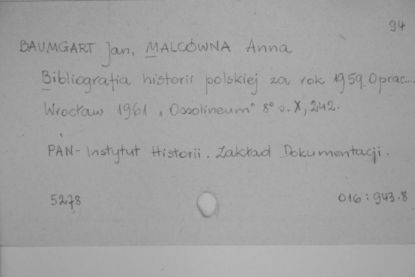 94
BAUMGART Jan, MALCÓWNA Anna
Bibliografia historii polskiej za rok 1959. Oprac...
Wrocław 1961 „Ossolineum" 8° s. X, 242.
PAN - Instytut Historii. Zakład Dokumentacji.
5278 016:943.8